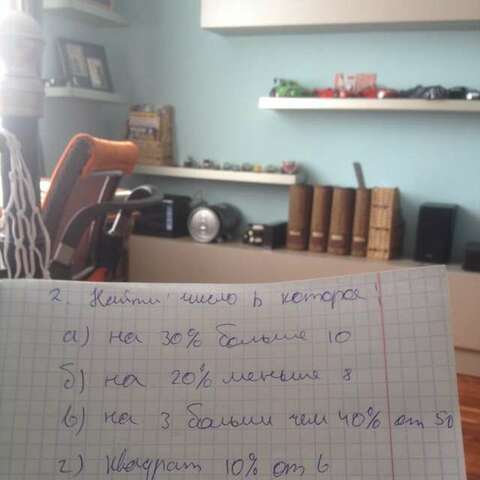 2. Найти число b которое
а) на 30% больше 10
б) на 20% меньше 8
в) на 3 больши чем 40% от 50
г) квадрат 10% от b